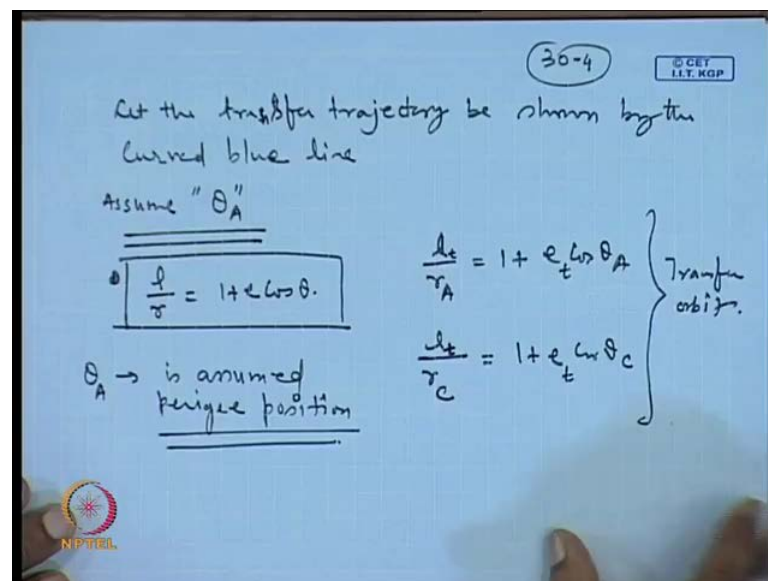 30-4
© CET
I.I.T. KGP
Let the transfer trajectory be shown by the
Curved blue line
Assume "θ_A"
l/r = 1 + e cos θ.
θ_A → is assumed
perigee position
l_t/r_A = 1 + e_t cos θ_A
l_t/r_C = 1 + e_t cos θ_C
Transfer
orbit.
NPTEL